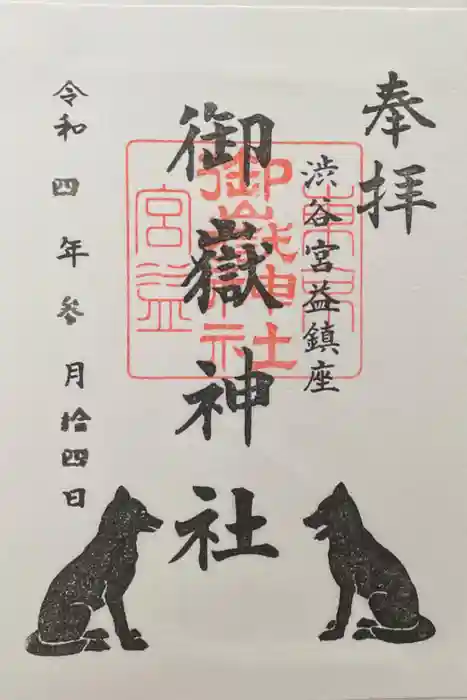 奉拝
渋谷宮益鎮座
御嶽神社
東京
御嶽神社
宮益
令和四年参月拾四日